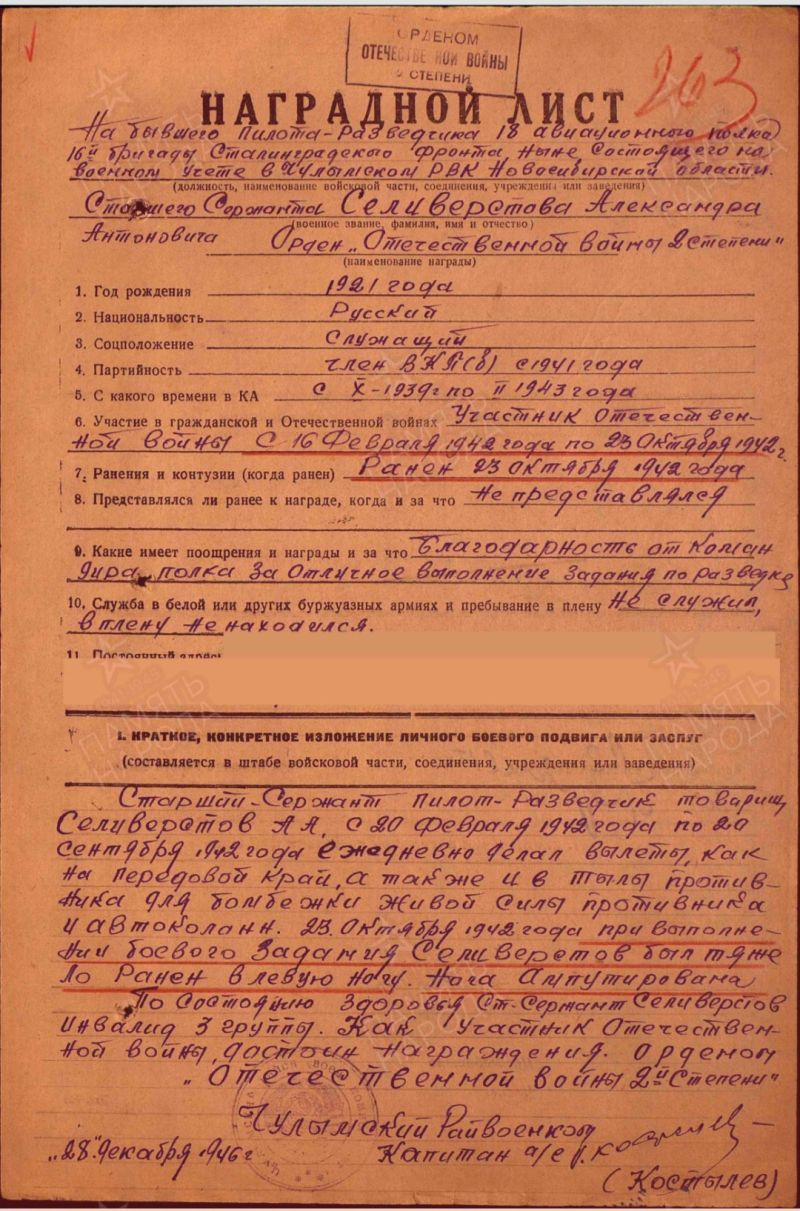 ОРДЕНОМ
ОТЕЧЕСТВЕННОЙ ВОЙНЫ
СТЕПЕНИ
263
НАГРАДНОЙ ЛИСТ
На бывшего пилота-разведчика 18 авиационного полка
16й бригады Сталинградского фронта, ныне состоящего на
военном учете в Чулымском РВК Новосибирской области.
(должность, наименование войсковой части, соединения, учреждения или заведения)
Старшего Сержанта Селиверстова Александра
(военное звание, фамилия, имя и отчество)
Антоновича Орден „Отечественной войны 2 степени"
(наименование награды)
1. Год рождения 1921 года
2. Национальность Русский
3. Соцположение Служащий
4. Партийность член ВКП(б) с 1941 года
5. С какого времени в КА С X-1939г по II 1943 года
6. Участие в гражданской и Отечественной войнах Участник Отечествен-
ной войны с 16 Февраля 1942 года по 23 Октября 1942г.
7. Ранения и контузии (когда ранен) Ранен 23 Октября 1942 года
8. Представлялся ли ранее к награде, когда и за что Не представлялся
9. Какие имеет поощрения и награды и за что Благодарность от коман
дира полка за отличное выполнение задания по разведке
10. Служба в белой или других буржуазных армиях и пребывание в плену Не служил,
в плену не находился.
11. Постоянный адрес:
I. КРАТКОЕ, КОНКРЕТНОЕ ИЗЛОЖЕНИЕ ЛИЧНОГО БОЕВОГО ПОДВИГА ИЛИ ЗАСЛУГ
(составляется в штабе войсковой части, соединения, учреждения или заведения)
Старший-Сержант пилот-разведчик товарищ
Селиверстов А А, с 20 февраля 1942 года по 20
сентября 1942 года ежедневно делал вылеты, как
на передовой край, а также и в тылы против-
ника для бомбежки живой силы противника
и автоколанн. 23 октября 1942 года при выполне-
нии боевого задания Селиверстов был тяже
ло ранен в левую ногу. Нога ампутирована
По состоянию здоровья Ст-Сержант Селиверстов
инвалид 3 группы. Как участник Отечествен-
ной войны, достоин награждения. орденом
„Отечественной войны 2й степени"
Чулымский Райвоенком
„28" декабря 1946г Капитан а/с
(Костылев)
ПАМЯТЬ
НАРОДА